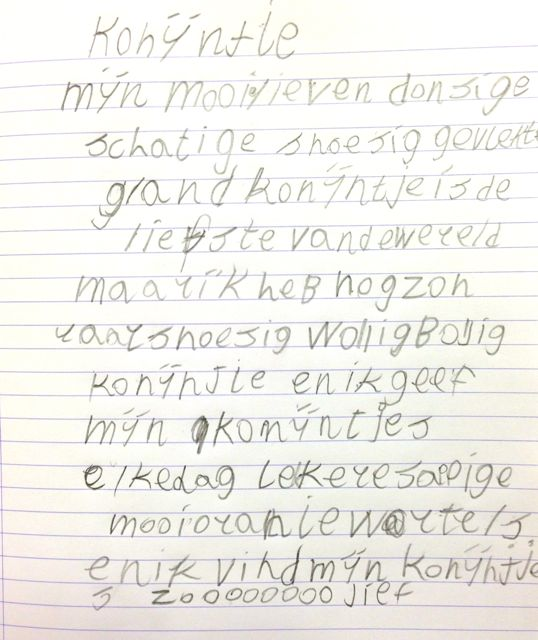 konÿntie
mÿn mooiyieven donsige
schatige snoesig gevlekt
gland konÿntje is de
liefste van de wereld
maar ik heb nog zon
raar snoesig wollig Bollig
konÿntie en ik geef
mÿn konÿntjes
elke dag lekere sapige
mooi oranie wortels
en ik vind mÿn konÿntje
s zooooooooo lief